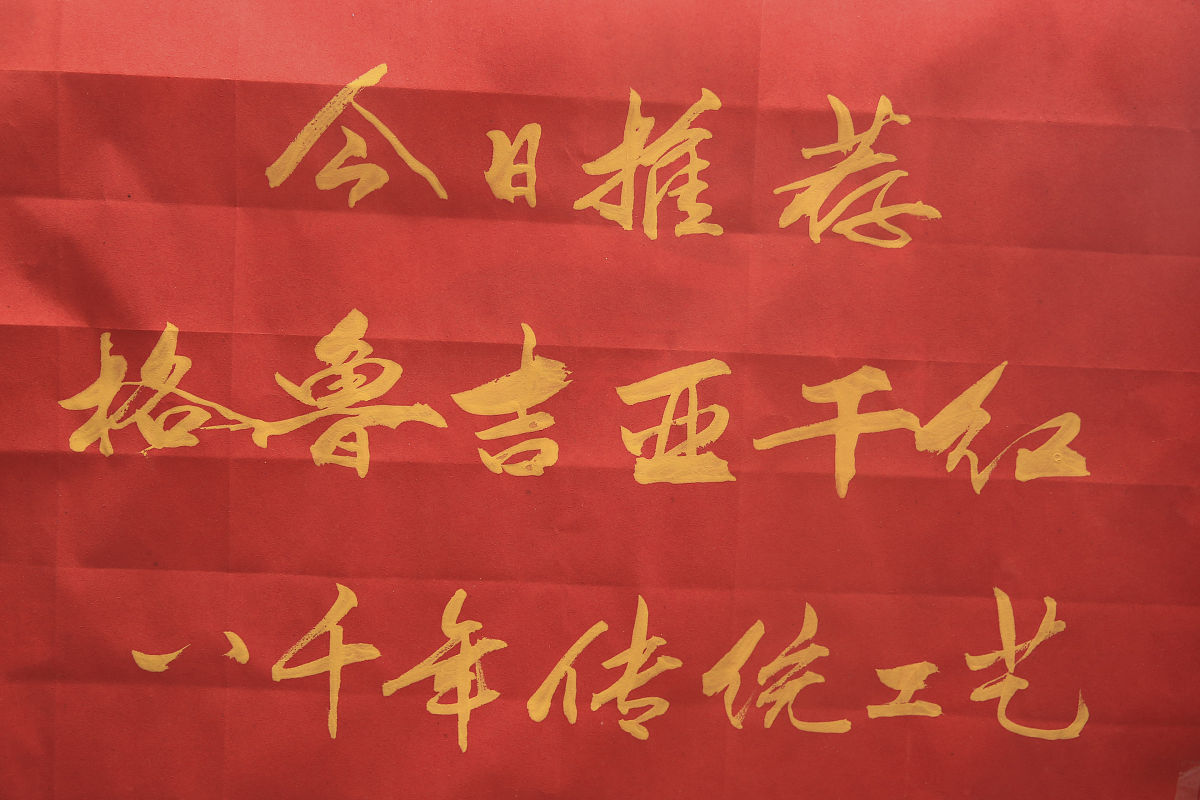 今日推荐
格鲁吉亚干红
八千年传统工艺